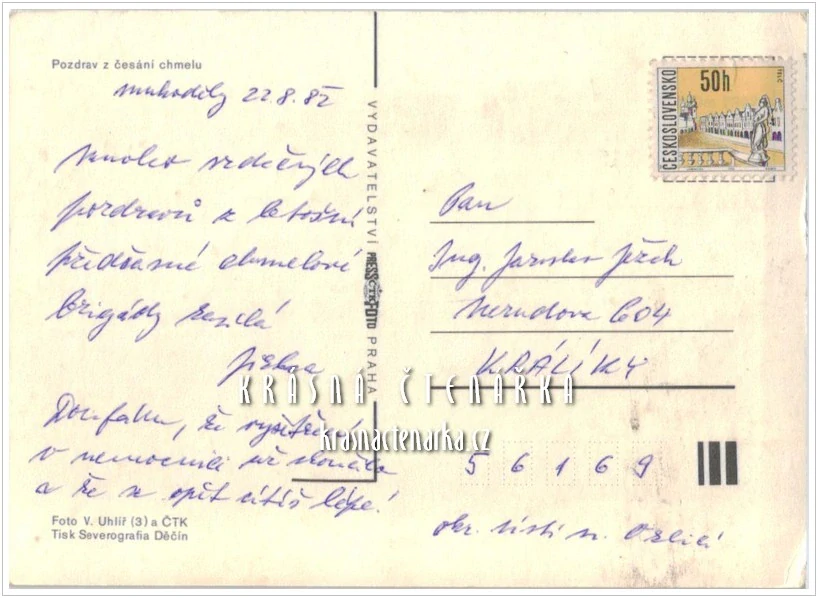 Pozdrav z česání chmelu
22.8.82
mnoho srdečných
pozdravů z letošní
předčasné chmelové
brigády zasílá
Doufám, že vyšetření
v nemocnici už skončilo
a že se opět cítíš lépe!
Foto V. Uhlíř (3) a ČTK
Tisk Severografia Děčín
VYDAVATELSTVÍ PRESSFOTO PRAHA
ČTK
ČESKOSLOVENSKO
50h
Pan
Ing. Jaroslav Ježek
Nerudova 604
KRÁLÍKY
56169
okr. Ústí n. Orlicí
KRÁSNÁ ČTENÁŘKA
krasnactenarka.cz